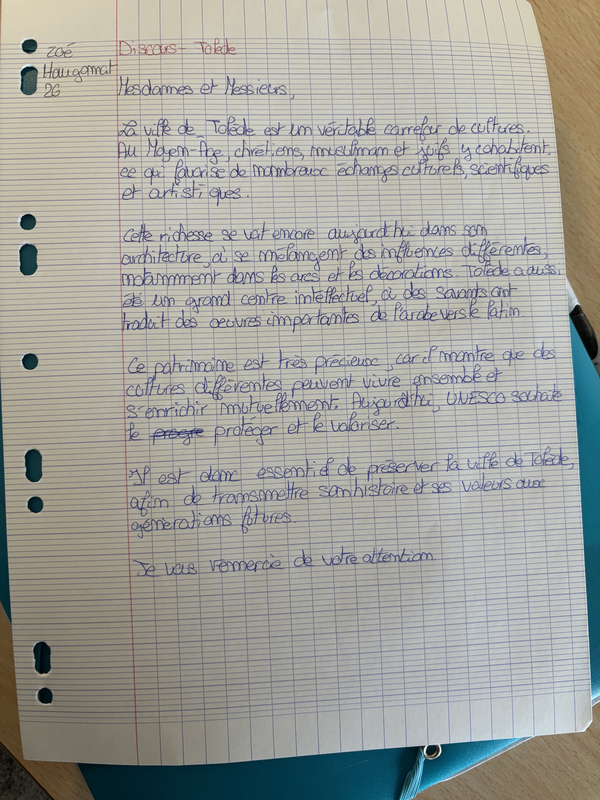 Zoé
Haugomat
26
Discours - Tolède
Mesdames et Messieurs,
La ville de Tolède est un véritable carrefour de cultures.
Au Moyen-Âge, chrétiens, musulmam et juifs y cohabitent.
ce qui favorise de nombreux échanges culturels, scientifiques
et artistiques.
Cette richesse se voit encore aujourd'hui dans son
architecture, où se mélangent des influences différentes,
notamment dans les arcs et les décorations Tolède a aussi
été un grand centre intellectuel, où des savants ont
traduit des oeuvres importantes de l'arabe vers le latin.
Ce patrimoine est très précieux, car il montre que des
cultures différentes peuvent vivre ensemble et
s'enrichir mutuellement. Aujourd'hui, UNESCO souhaite
le progre protéger et le valoriser.
Il est donc essentiel de préserver la ville de Tolède,
afin de transmettre son histoire et ses valeurs aux
générations futures.
Je vous remercie de votre attention